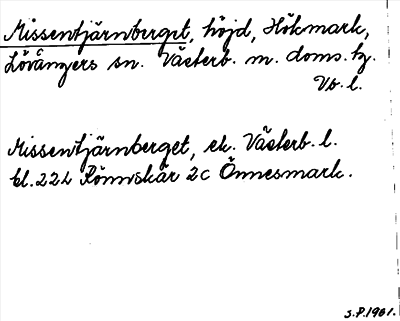 Missentjärnberget, höjd, Hökmark,
Lövångers sn. Västerb. m. doms. tg.
Vb. l.
Missentjärnberget, ek. Västerb. l.
bl. 22L Rönnskär 2c Önnesmark.
S.P. 1961.